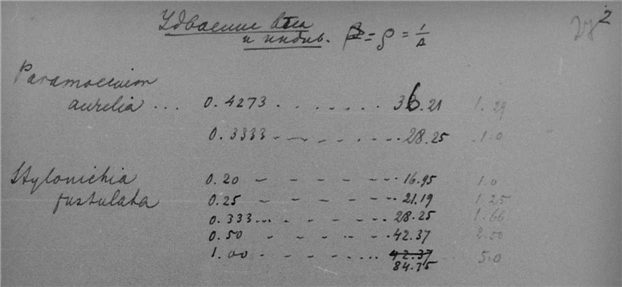 Удвоение веса
и индив. β = ρ = 1/Δ
2
Paramoecium
aurelia ... 0.4273 ....... 36.21 1.29
0.3333 ------- 28.25 1.0
Stylonichia
pustulata
0.20 ------ 16.95 1.0
0.25 ------ 21.19 1.25
0.333... ----- 28.25 1.66
0.50 ------ 42.37 2.50
1.00 ------ 42.37 5.0
84.75